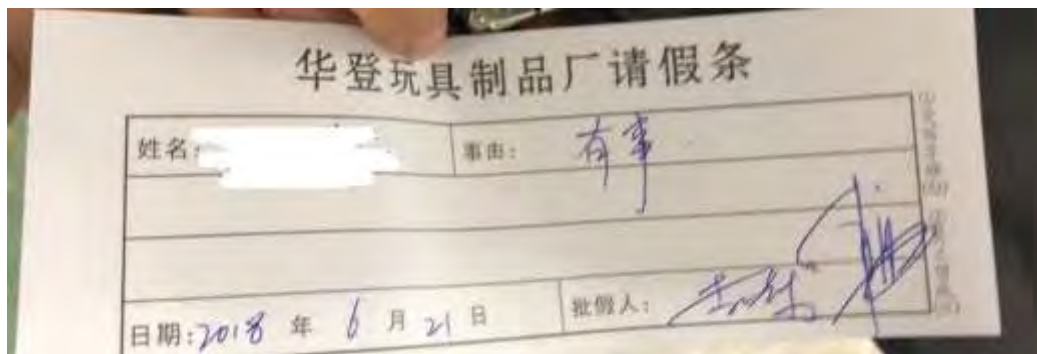 华登玩具制品厂请假条
姓名: 事由: 有事
日期:2018 年 6 月 21 日 批假人: